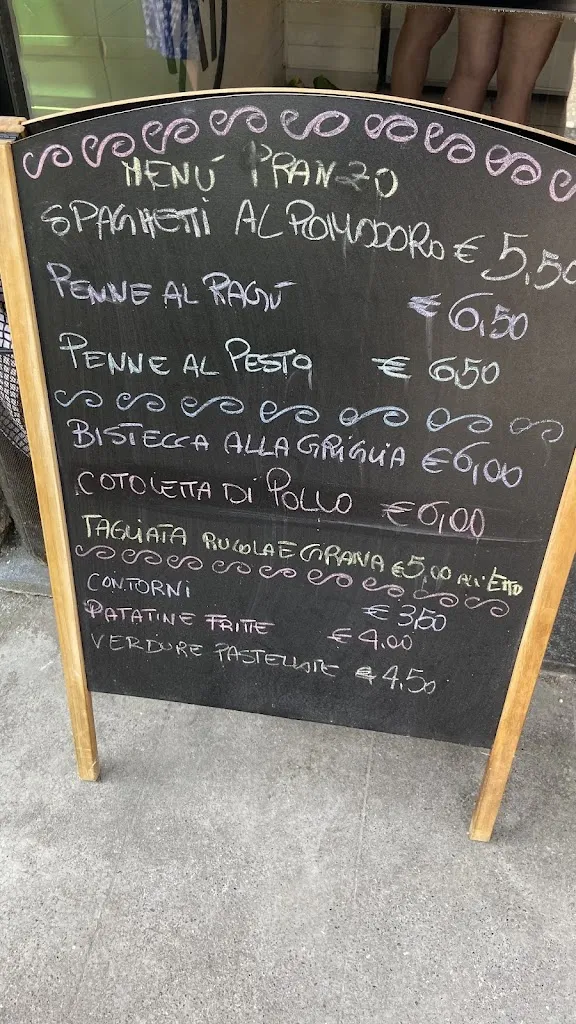 MENÚ PRANZO
SPAGHETTI AL POMODORO € 5,50
PENNE AL RAGÚ € 6,50
PENNE AL PESTO € 6,50
BISTECCA ALLA GRIGLIA € 6,00
COTOLETTA DI POLLO € 6,00
TAGLIATA RUCOLA E GRANA € 5,00 ALL'ETTO
CONTORNI € 3,50
PATATINE FRITTE € 4,00
VERDURE PASTELLATE € 4,50